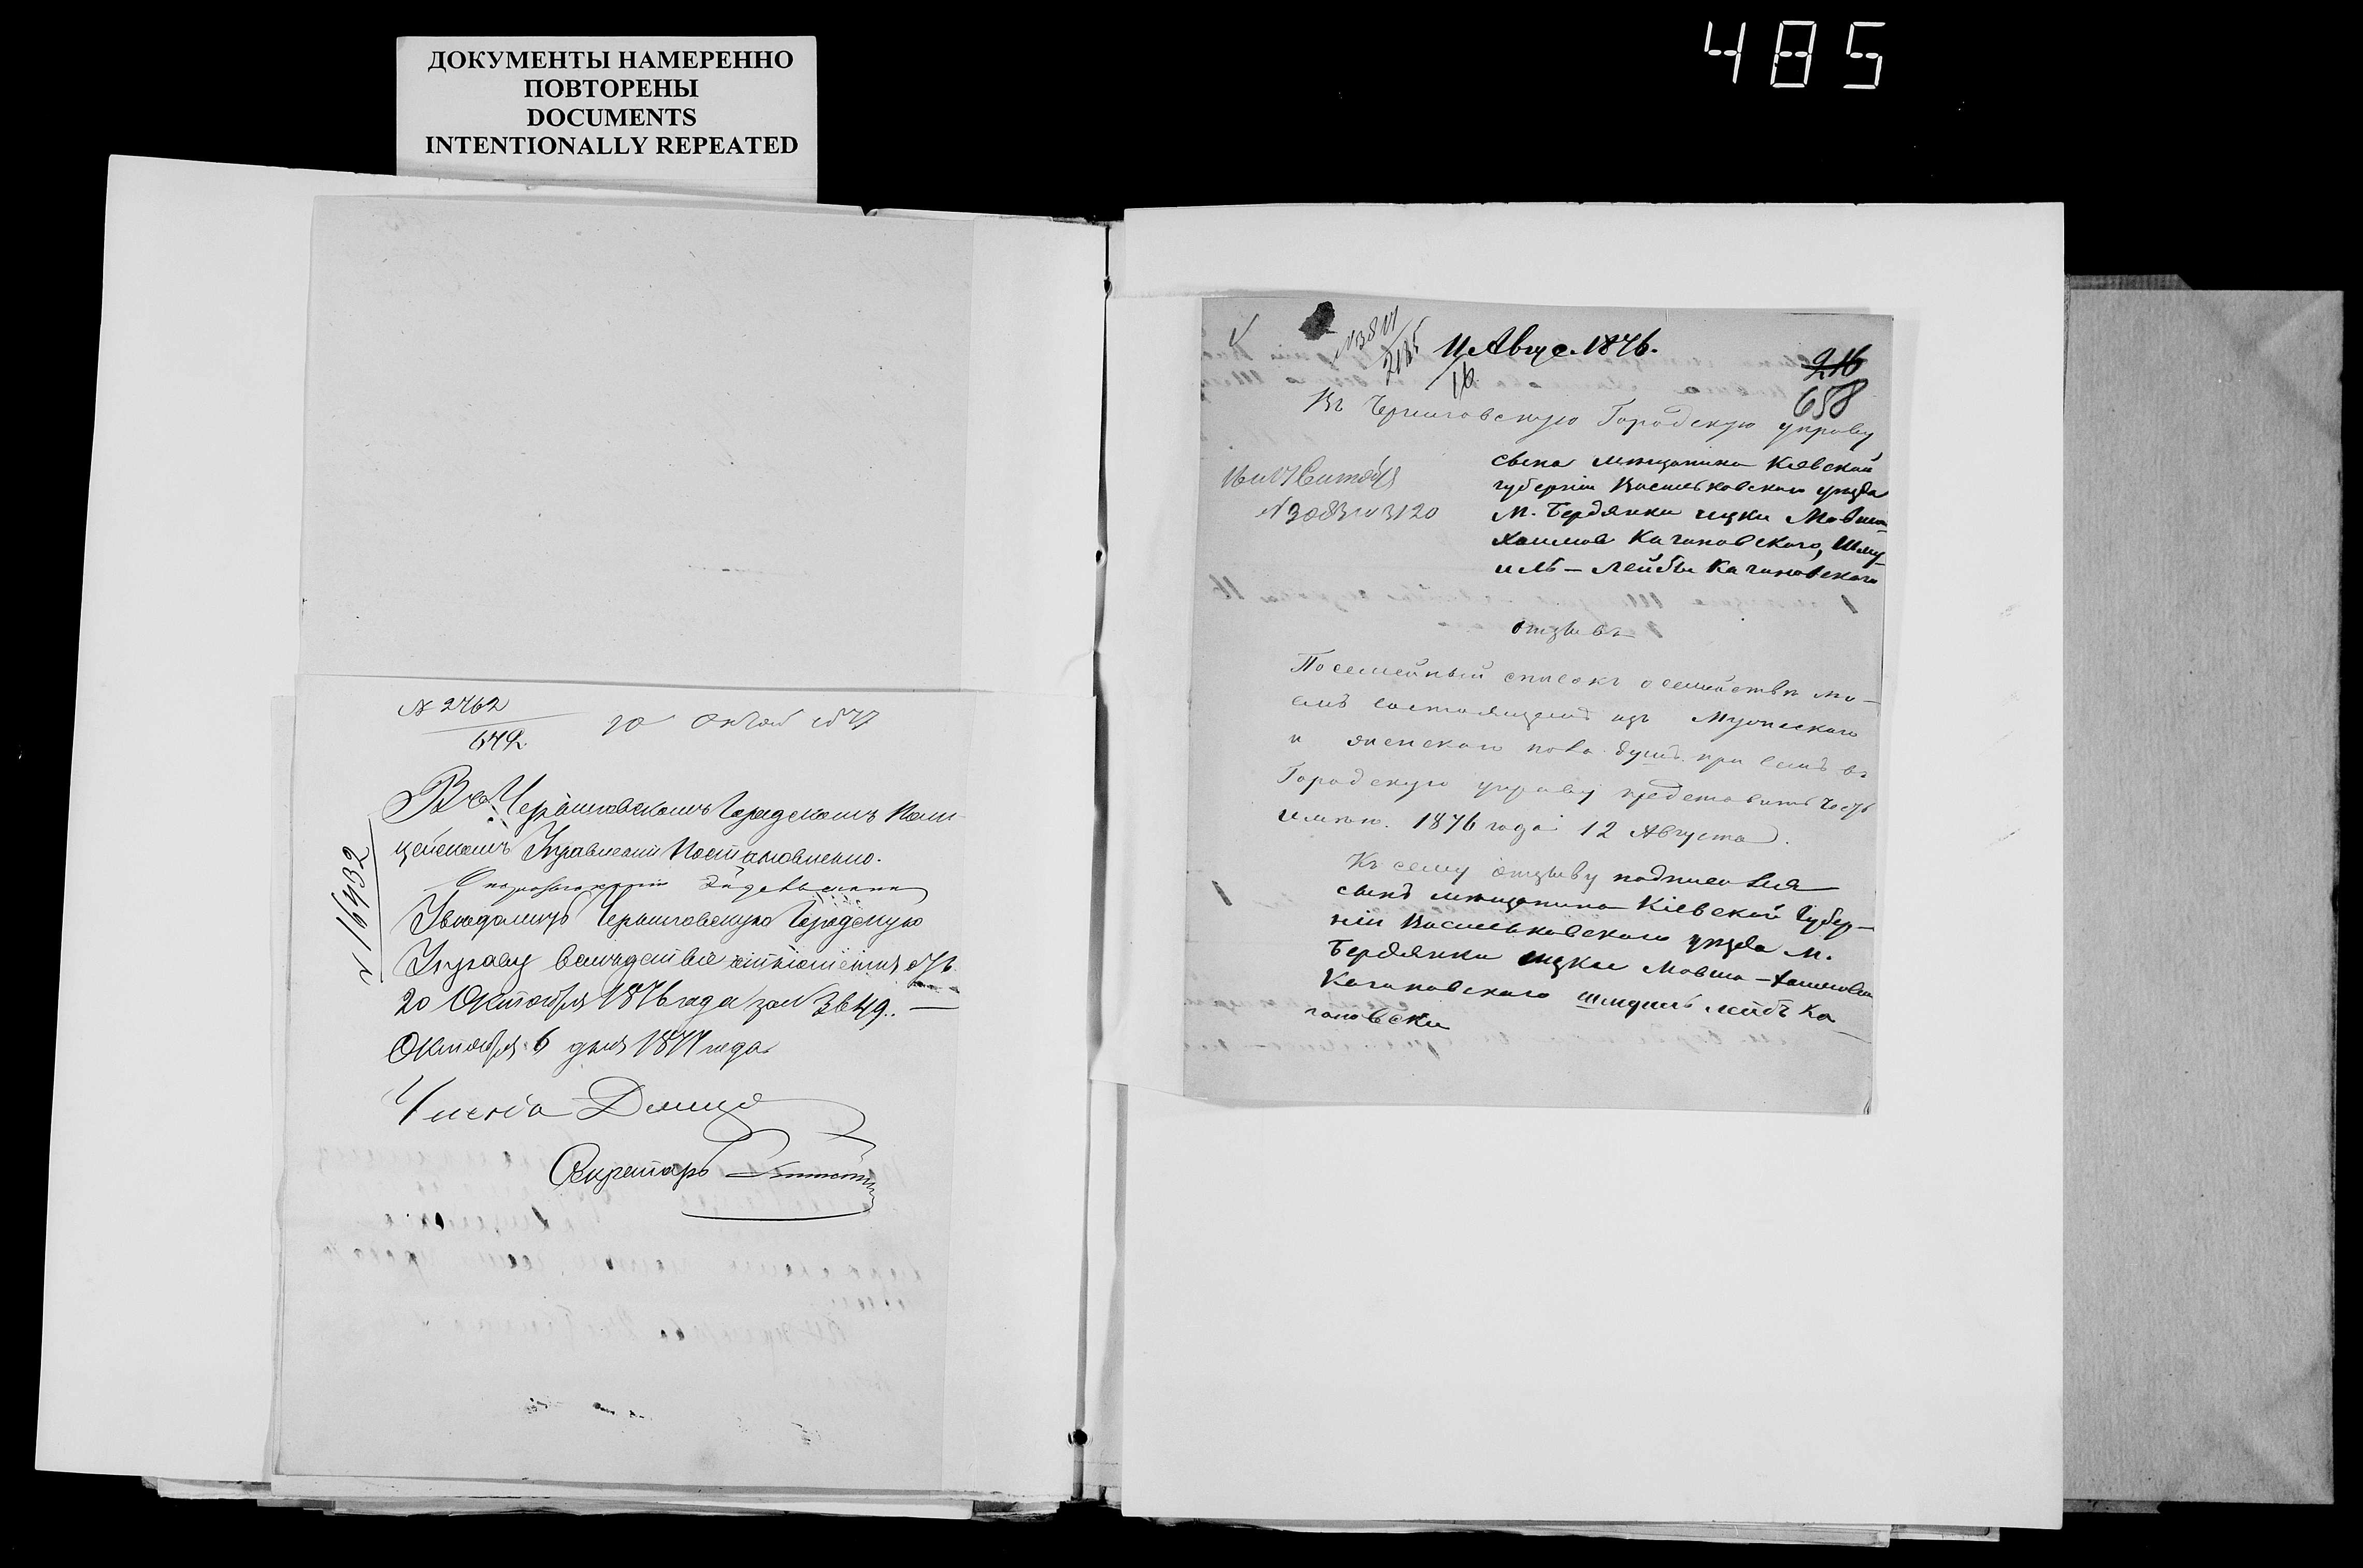 ДОКУМЕНТЫ НАМЕРЕННО
ПОВТОРЕНЫ
DOCUMENTS
INTENTIONALLY REPEATED
485
№ 2762
642
10 Октяб 1877
№ 16432
Въ Черниговскомъ Городскомъ Поли
цейскомъ Управленіи Постановлено.
Увѣдомить Черниговскую Городскую
Управу вслѣдствіе отношенія отъ
20 Октября 1876 года за № 3649. —
Октября 6 дня 1877 года
Секретарь
11 Авгус. 1876.
16
216
658
Въ Черниговскую Городскую управу
№ 3083 и 3120
сына мѣщанина Кіевской
губерніи Васильковскаго уѣзда
М. Бердянки ицки Мовша
хаимова Кагановскаго, Шму-
иль — Лейбы Кагановскаго
отзывъ
Посемейный списокъ о семействѣ мо-
емъ состоящемъ изъ Мужескаго
и женскаго пола душъ при семъ въ
Городскую управу представить честь
имѣю. 1876 года 12 Августа.
Къ сему отзыву подписался
сынъ мѣщанина Кіевской Губер-
ніи Васильковскаго уѣзда м.
Бердянки ицка Мовша — хаимова
Кагановскаго шмуиль лейбъ Ка
гановски